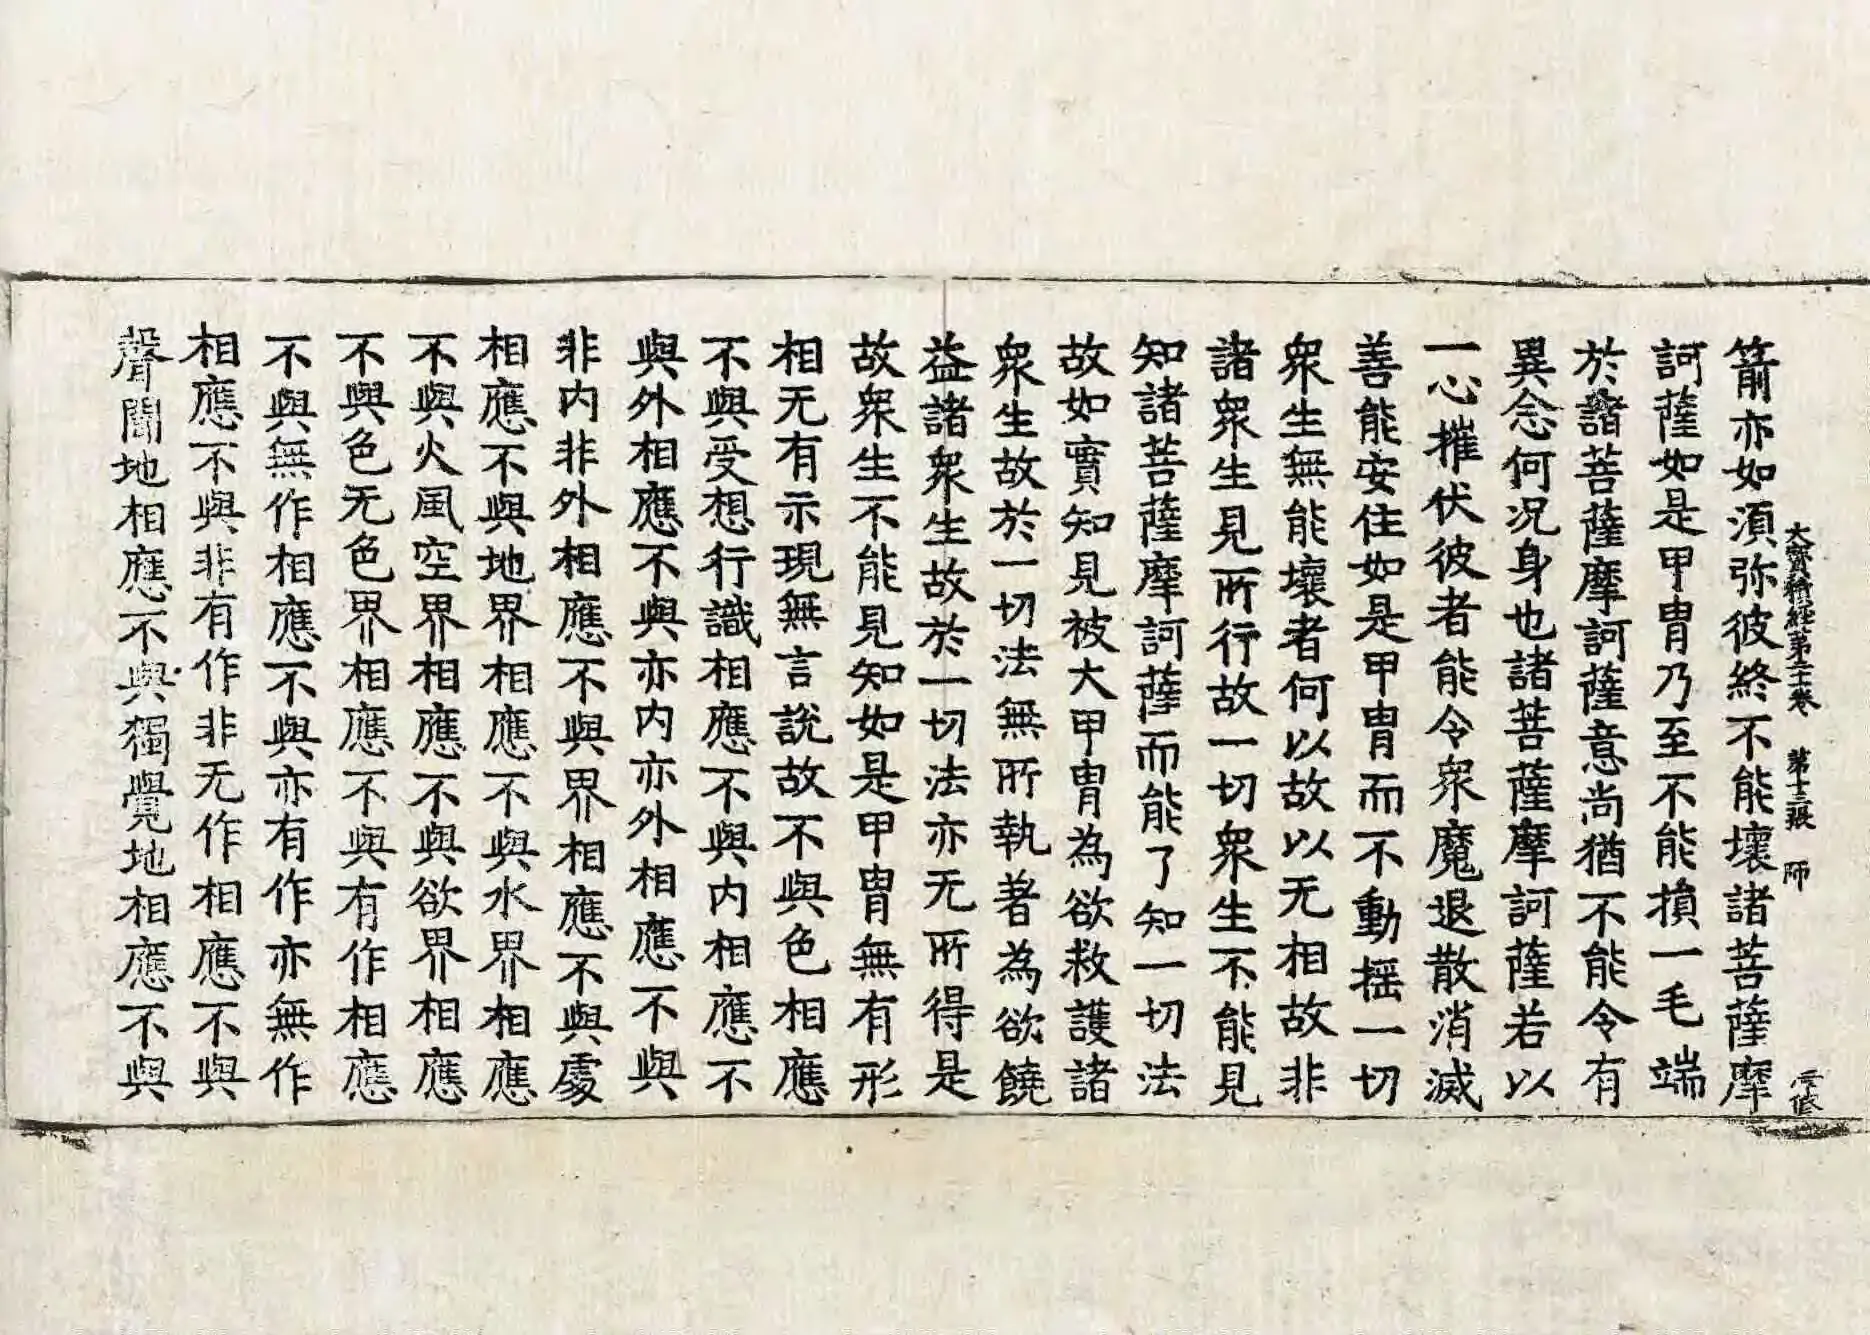 大寶積經第二十二卷　第十三張　师
箭亦如湏弥彼終不能壞諸菩薩摩
訶薩如是甲冑乃至不能損一毛端
於諸菩薩摩訶薩意尚猶不能令有
異念何況身也諸菩薩摩訶薩若以
一心摧伏彼者能令衆魔退散消滅
善能安住如是甲冑而不動揺一切
衆生無能壞者何以故以无相故非
諸衆生見所行故一切衆生不能見
知諸菩薩摩訶薩而能了知一切法
故如實知見被大甲冑為欲救護諸
衆生故於一切法無所執著為欲饒
益諸衆生故於一切法亦无所得是
故衆生不能見知如是甲冑無有形
相无有示現無言說故不與色相應
不與受想行識相應不與内相應不
與外相應不與亦内亦外相應不與
非内非外相應不與界相應不與處
相應不與地界相應不與水界相應
不與火風空界相應不與欲界相應
不與色无色界相應不與有作相應
不與無作相應不與亦有作亦無作
相應不與非有作非无作相應不與
聲聞地相應不與獨覺地相應不與